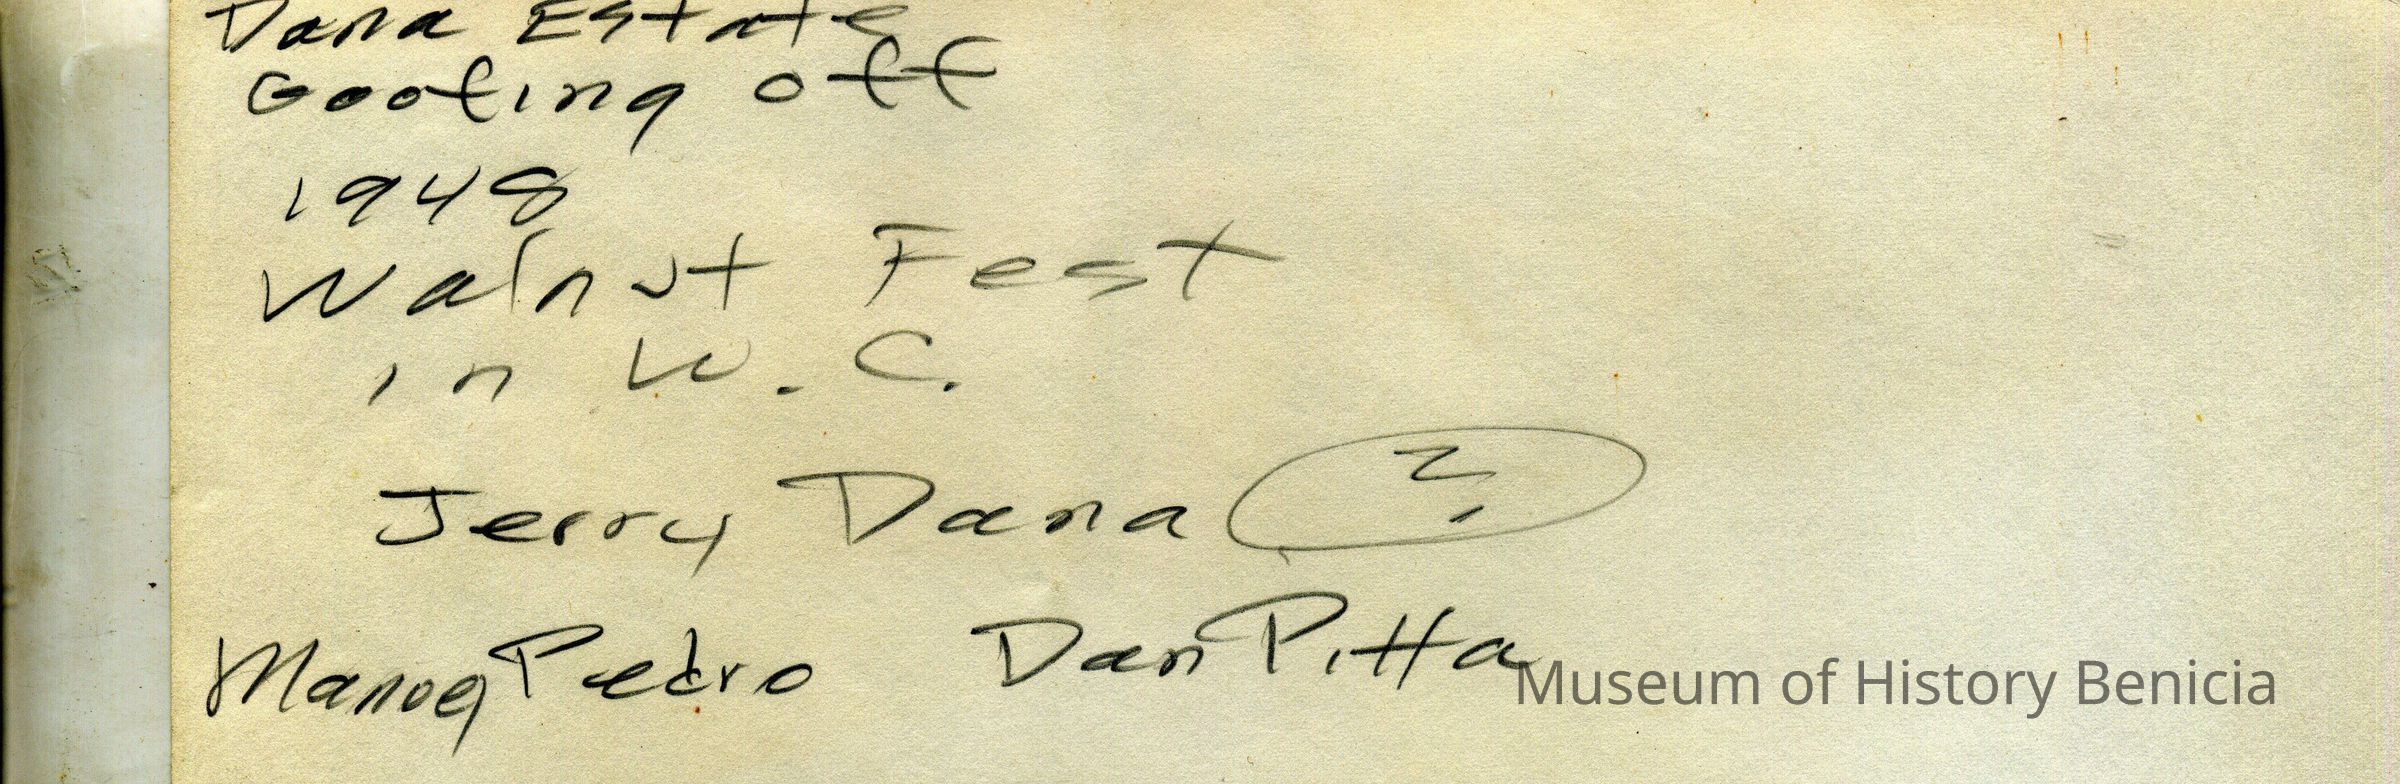 Dana Estate
Goofing off
1948
Walnut Fest
in W.C.
Jerry Dana ?
Pedro Dan Pitta
Museum of History Benicia